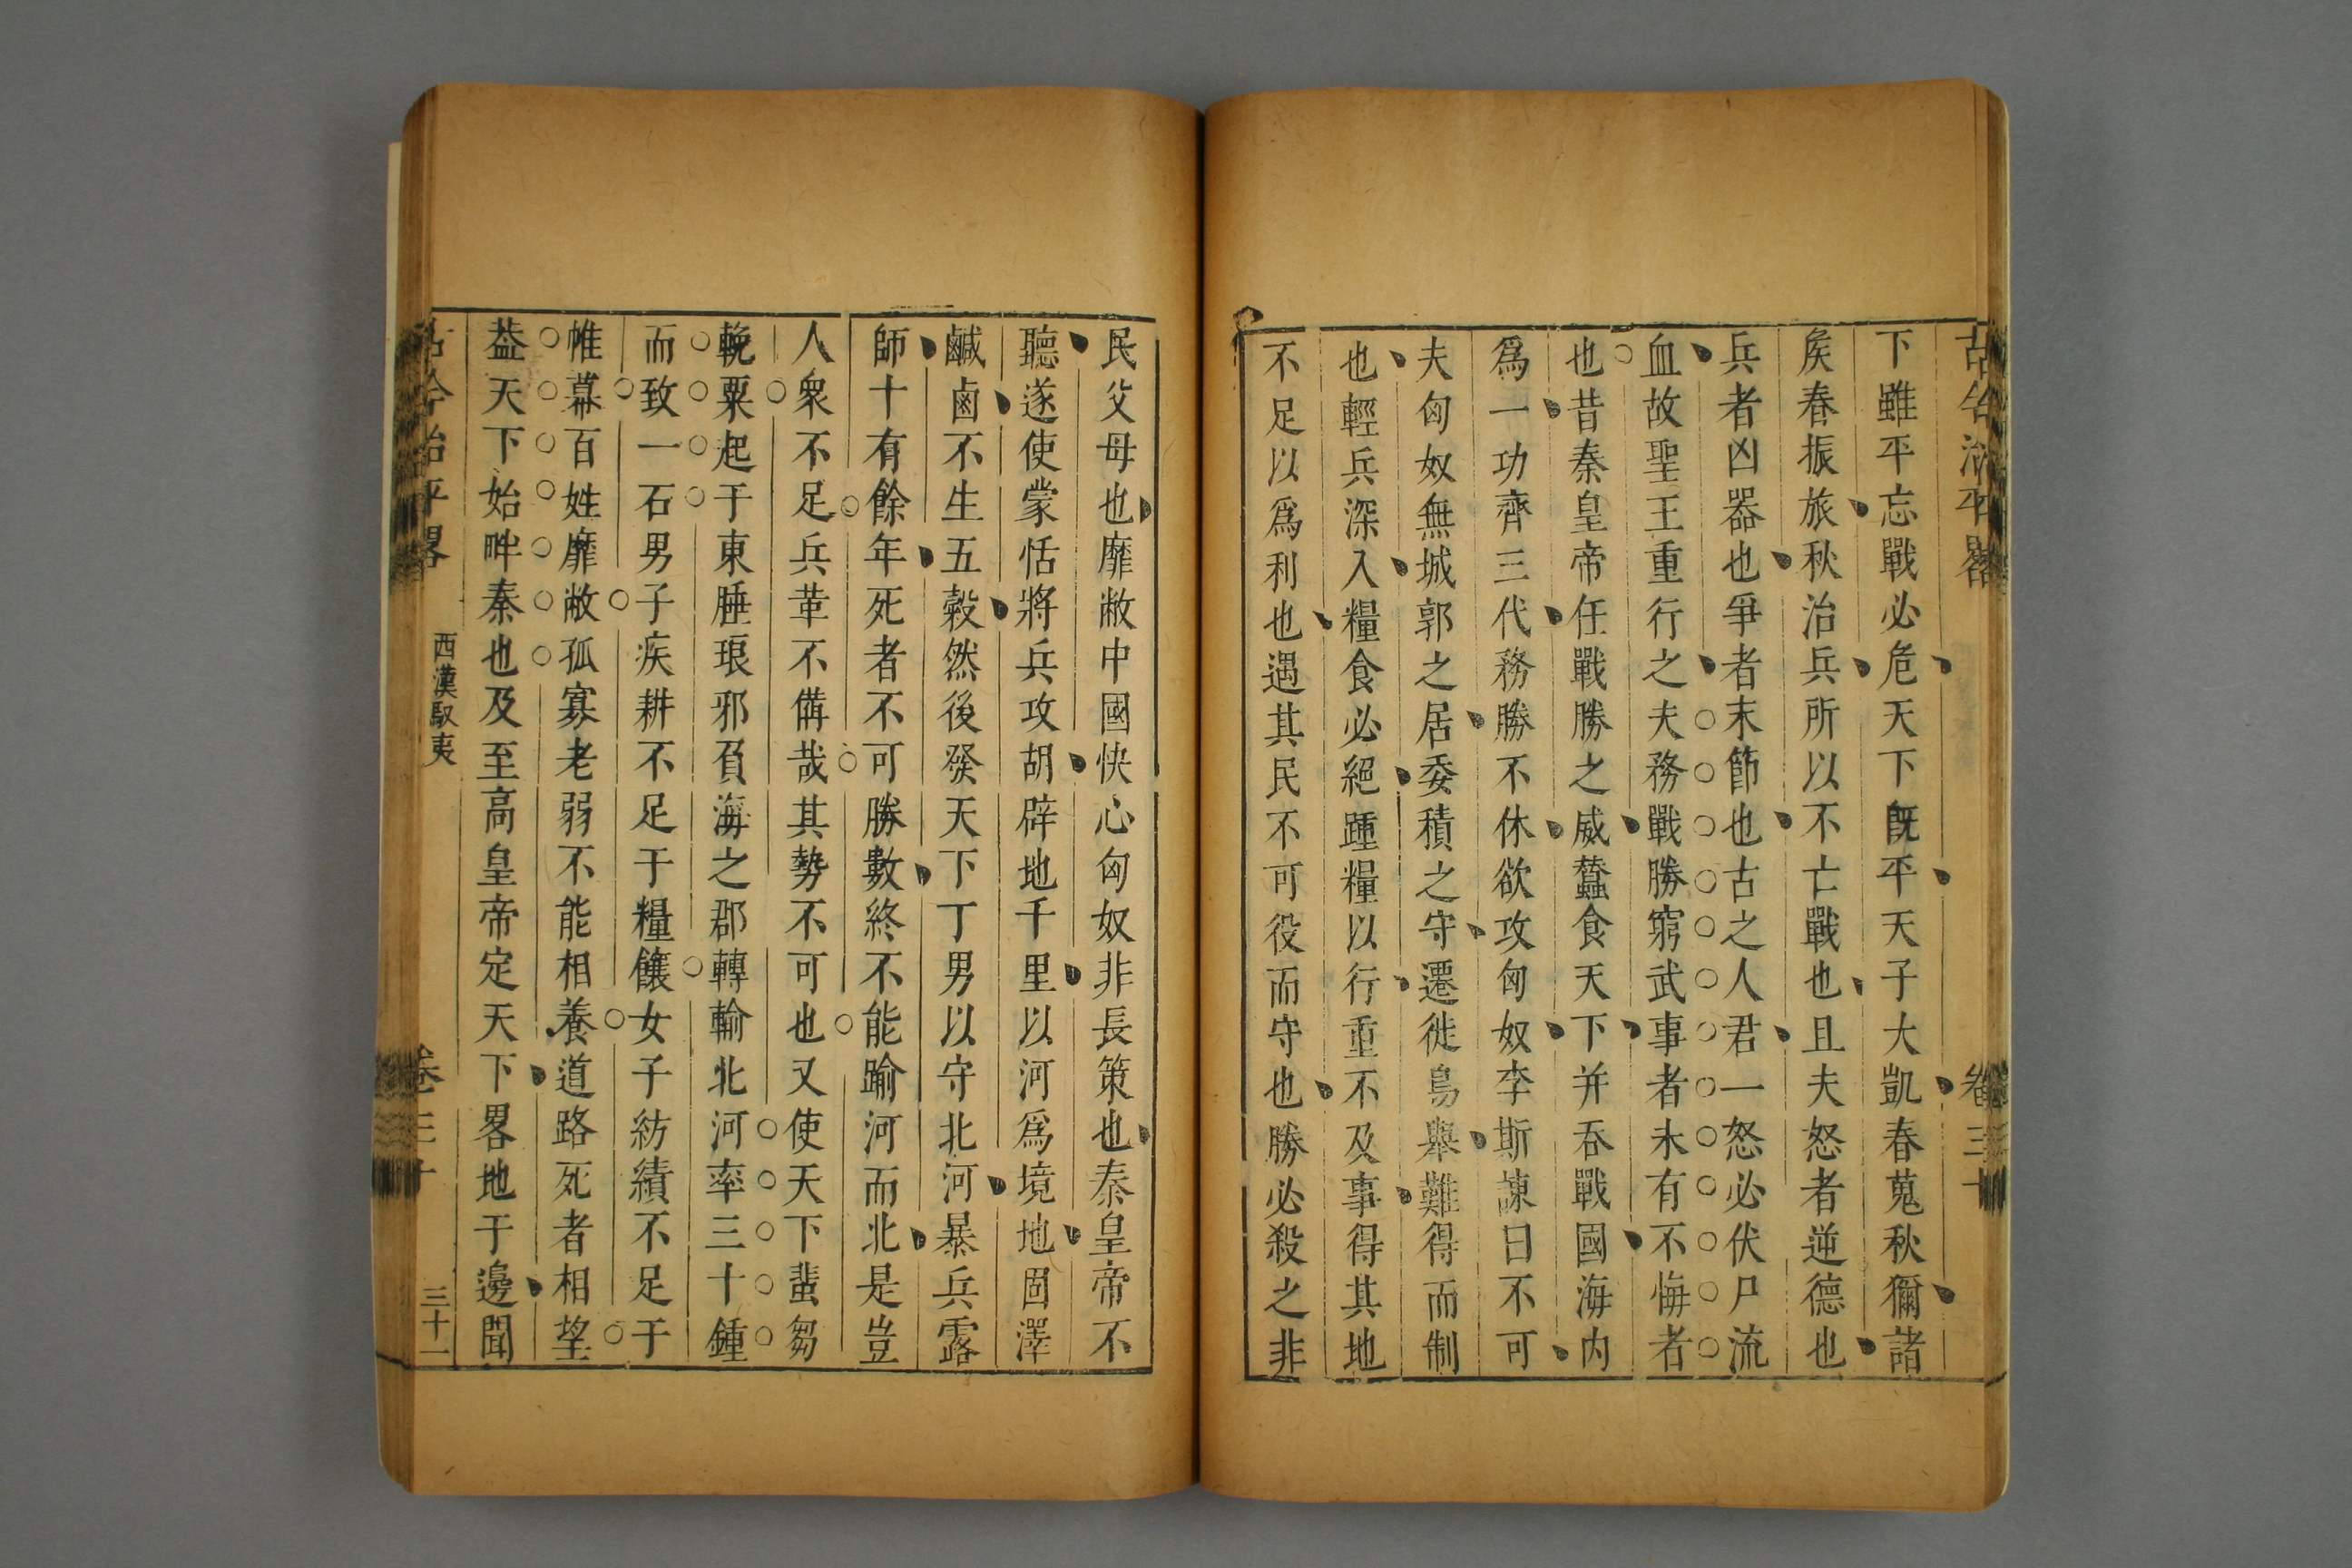 古今治平畧 卷三十
下雖平忘戰必危天下旣平天子大凱春蒐秋獮諸
矦春振旅秋治兵所以不亡戰也且夫怒者逆德也
兵者凶器也爭者末節也古之人君一怒必伏尸流
血故聖王重行之夫務戰勝窮武事者未有不悔者
也昔秦皇帝任戰勝之威蠶食天下并吞戰國海内
爲一功齊三代務勝不休欲攻匈奴李斯諫曰不可
夫匈奴無城郭之居委積之守遷徙鳥舉難得而制
也輕兵深入糧食必絕踵糧以行重不及事得其地
不足以爲利也遇其民不可役而守也勝必殺之非
民父母也靡敝中國快心匈奴非長策也秦皇帝不
聽遂使蒙恬將兵攻胡辟地千里以河爲境地固澤
鹹鹵不生五穀然後發天下丁男以守北河暴兵露
師十有餘年死者不可勝數終不能踰河而北是豈
人衆不足兵革不備哉其勢不可也又使天下蜚芻
輓粟起于東腄琅邪負海之郡轉輸北河率三十鍾
而致一石男子疾耕不足于糧饟女子紡績不足于
帷幕百姓靡敝孤寡老弱不能相養道路死者相望
葢天下始畔秦也及至高皇帝定天下畧地于邊聞
古今治平畧 西漢馭夷 卷三十 三十一